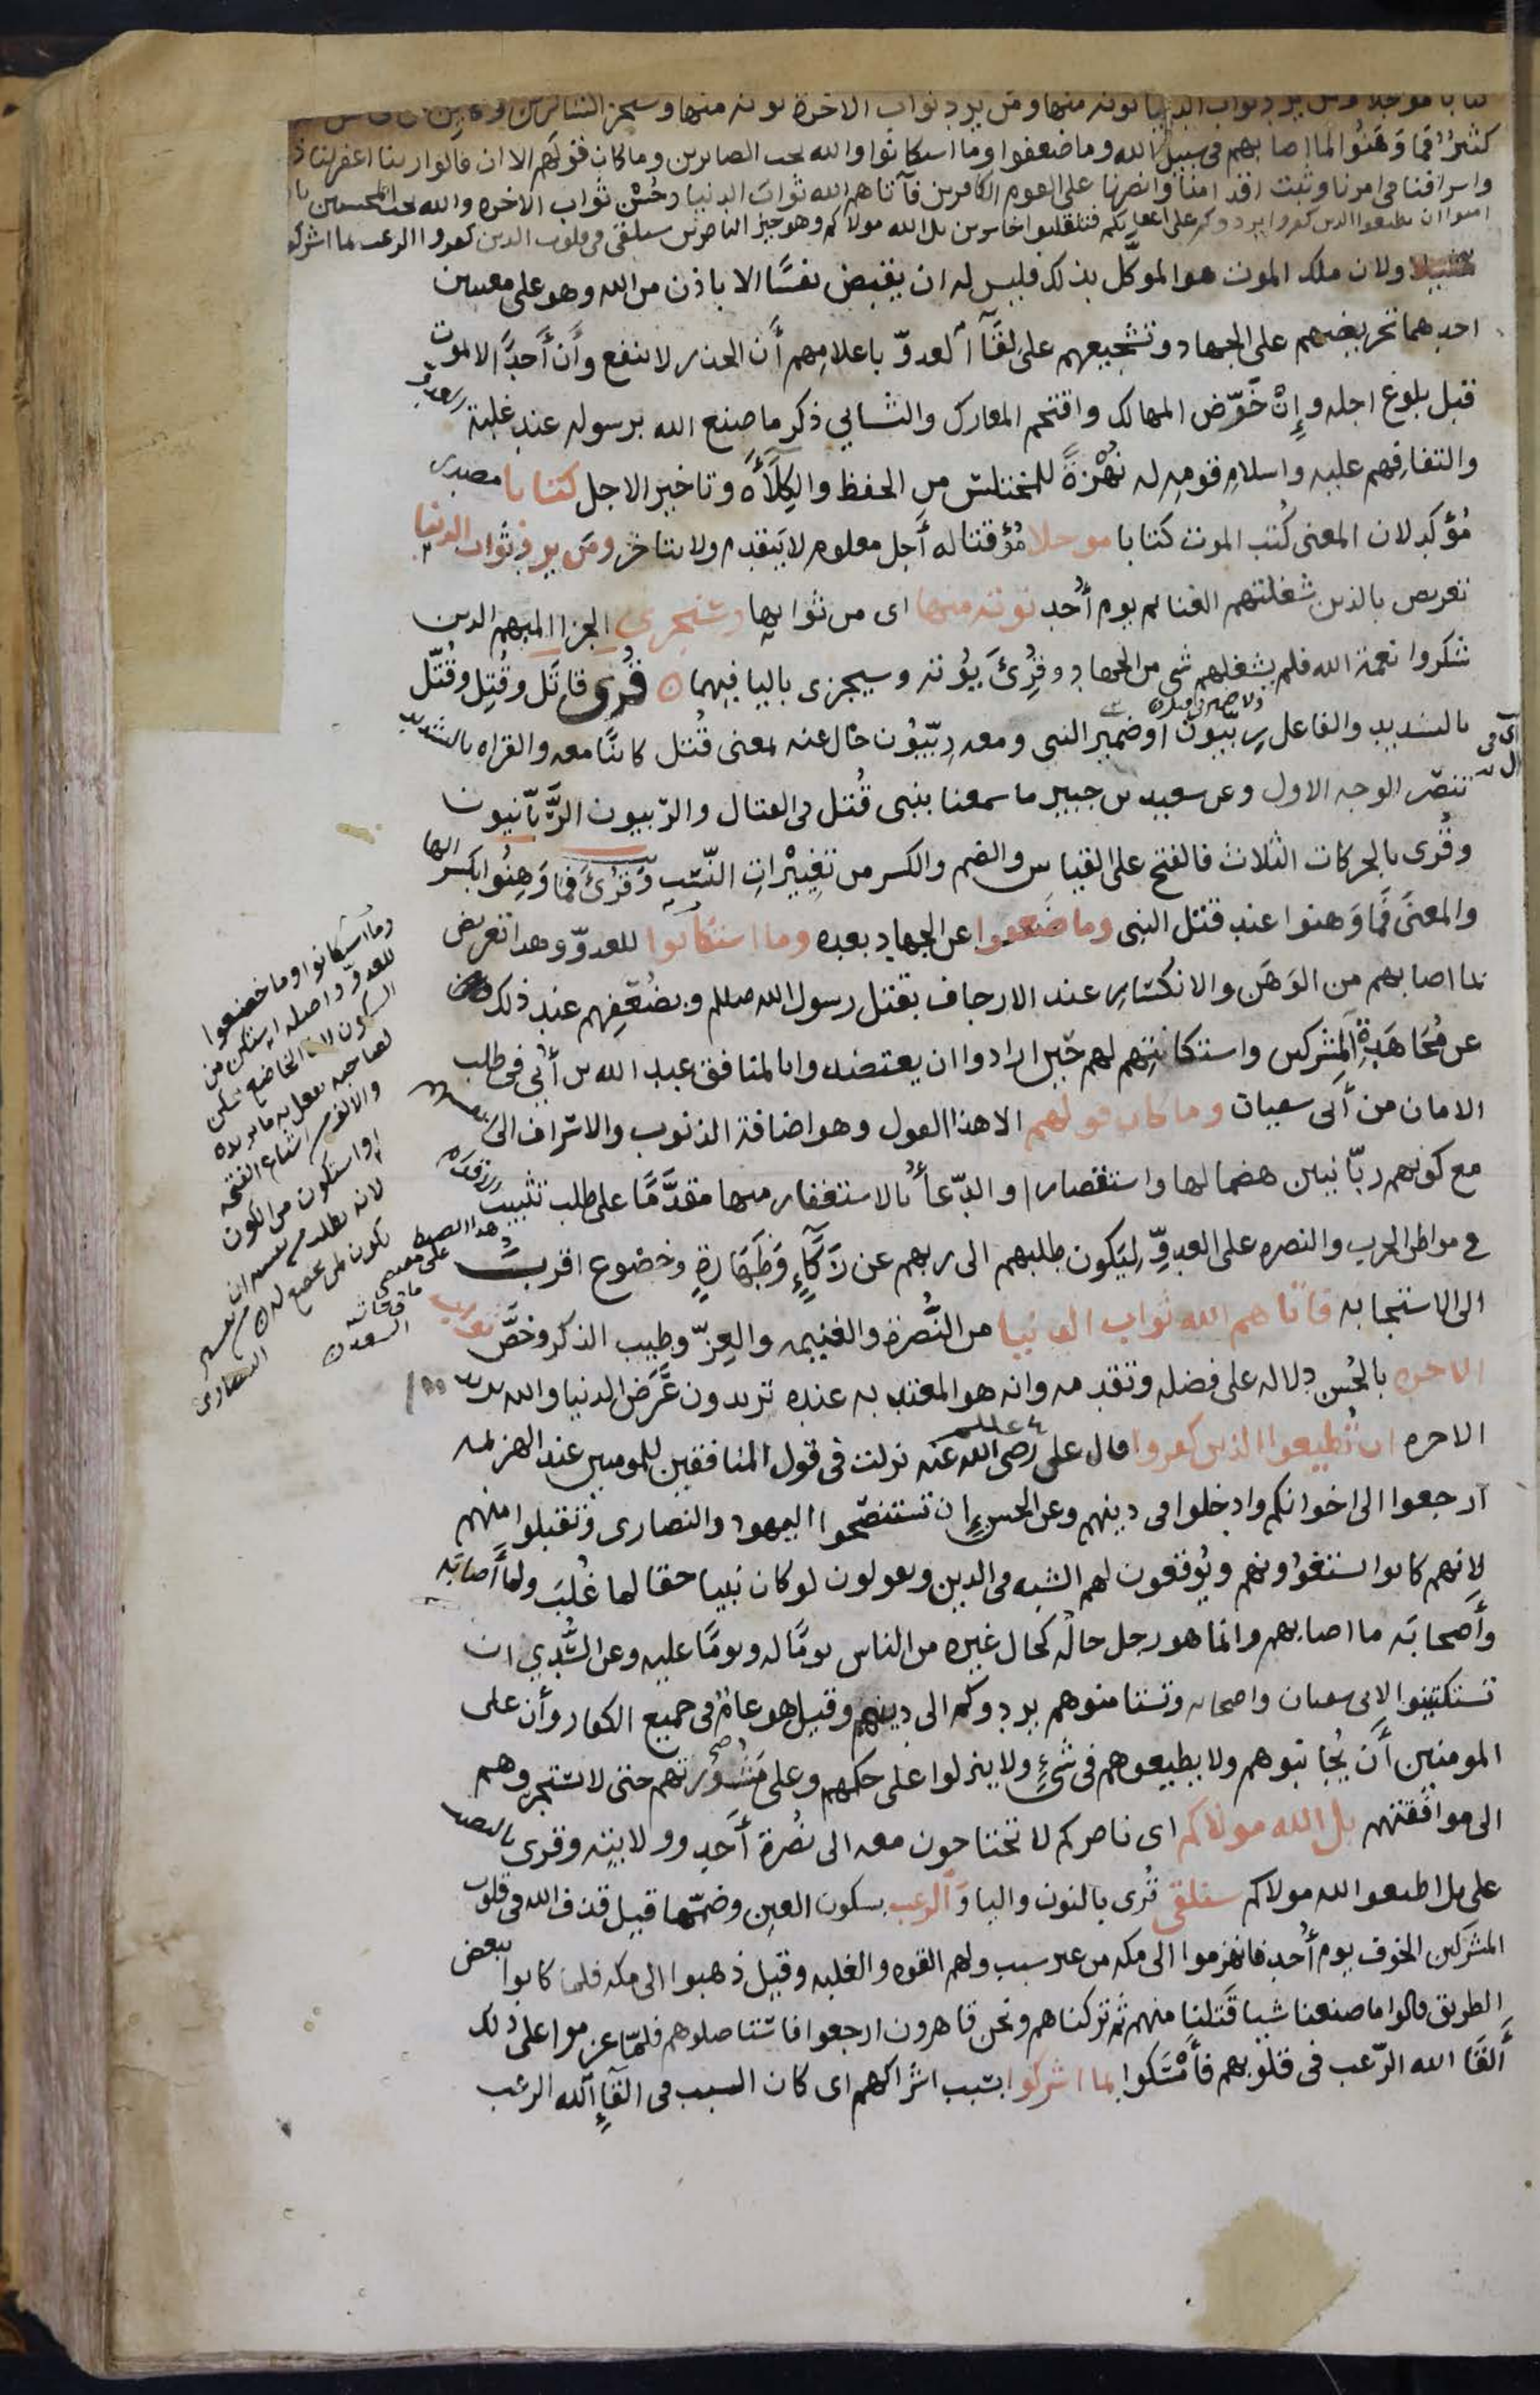 كتابا موجلا ومن يرد ثواب الدنيا نوته منها ومن يرد ثواب الاخرة نوته منها وسنجزي الشاكرين وكاين من
كثير فما وهنوا لما اصابهم في سبيل الله وما ضعفوا وما استكانوا والله يحب الصابرين وما كان قولهم الا ان قالوا ربنا اغفر لنا
واسرافنا في امرنا وثبت اقدامنا وانصرنا على القوم الكافرين فآتاهم الله ثواب الدنيا وحسن ثواب الاخره والله يحب المحسنين
امنوا ان تطيعوا الذين كفروا يردوكم على اعقابكم فتنقلبوا خاسرين بل الله مولاكم وهو خير الناصرين سنلقي في قلوب الذين كفروا الرعب بما اشركو
ولان ملك الموت هو الموكّل بذلك فليس له ان يقبض نفسًا الا باذن من الله وهو على معنيين
احدهما تحريضهم على الجهاد وتشجيعهم على لقآ العدوّ باعلامهم أن الحذر لا ينفع وأن أحدًا لا يموت
قبل بلوغ اجله وإن خوّض المهالك واقتحم المعارك والثاني ذكر ما صنع الله برسوله عند غلبة العدو
والتفافهم عليه واسلام قومه له نُهْزةً للمختلس من الحفظ والكلأه وتاخير الاجل كتابا مصدر
مُؤكد لان المعنى كُتب الموت كتابا موجلا مُؤقتا له أجل معلوم لا يتقدم ولا يتاخر ومن يرد ثواب الدنيا
تعريض بالذين شغلتهم الغنايم يوم أُحد نوته منها اى من ثوابها وسنجزى الجزا المبهم الذين
شكروا نعمة الله فلم يشغلهم شى من الجهاد وقُرِئَ يؤته وسيجزى باليا فيهما ۝ قُرى قاتَل وقُتِل وقُتّل
بالتشديد والفاعل ربّيّون او ضمير النبى ومعه رِبّيّون حال عنه بمعنى قُتل كائنًا معه والقراه بالتشديد
تنصر الوجه الاول وعن سعيد بن جبير ما سمعنا بنبى قُتل في القتال والرّبيون الرَّبّانيون
وقُرى بالحركات الثلاث فالفتح على القياس والضم والكسر من تغييرات النّسب وقُرئَ فما وهِنُوا بكسر الها
والمعنى فما وهنوا عند قتل النبى وما ضعفوا عن الجهاد بعده وما استكانوا للعدوّ وهذا تعريض
بما اصابهم من الوَهَن والانكسار عند الارجاف بقتل رسول الله صللم وبضعفهم عند ذلك
عن مُجاهَدةِ المشركين واستكانتهم لهم حين ارادوا ان يعتضدوا بالمنافق عبد الله بن أُبيّ في طلب
الامان من أبى سفيان وما كان قولهم الا هذا القول وهو اضافة الذنوب والاسراف الى انفسهم
مع كونهم ربّانيين هضما لها واستقصارا والدّعأ بالاستغفار منها مقدَّمًا على طلب تثبيت الاقدام
في مواطن الحرب والنصره على العدوّ ليكون طلبهم الى ربهم عن زكآءٍ وَطهارةٍ وخضوع اقرب
الى الاستجابه فآتاهم الله ثواب الدنيا من النُّصرة والغنيمه والعِزّ وطيب الذكر وخصَّ ثواب
الاخره بالحُسن دلاله على فضله وتقدمه وانه هو المعتد به عنده تريدون عَرَض الدنيا والله يريد
الاخره ان تُطيعوا الذين كفروا قال على رضى الله عنه نزلت فى قول المنافقين للمومنين عند الهزيمه
آرجعوا الى اخوانكم وادخلوا فى دينهم وعن الحسن إن تستنصحوا اليهود والنصارى وتقبلوا منهم
لانهم كانوا يستغوُونهم ويُوقعون لهم الشبه فى الدين ويقولون لو كان نبيا حقا لما غُلبَ ولما أصابه
وأَصحابَه ما اصابهم وانما هو رجل حاله كحال غيره من الناس يومًا له ويومًا عليه وعن السُّدي ان
تستكينوا لابى سفيان واصحابه وتستامنوهم يردوكم الى دينهم وقيل هو عامٌ فى جميع الكفار وأن على
المومنين أَن يُجانبوهم ولا يطيعوهم فى شئٍ ولا ينزلوا على حكمهم وعلى مَشُورتهم حتى لا يستجروهم
الى موافقتهم بل الله مولاكم اى ناصركم لا تحتاجون معه الى نُصْرة أَحدٍ وولايته وقرى بالنصب
على بل اطيعوا الله مولاكم سنلقى قُرى بالنون واليا وَالرعب بسكون العين وضمّها قيل قذف الله فى قلوب
المشركين الخوف يوم أُحد فانهزموا الى مكه من غير سبب ولهم القوه والغلبه وقيل ذهبوا الى مكه فلما كانوا ببعض
الطريق قالوا ما صنعنا شيا قَتلنا منهم ثم تركناهم ونحن قاهرون ارجعوا فاستاصلوهم فلمّا عزموا على ذلك
أَلقَا الله الرّعب فى قلوبهم فأَمْسَكوا بما اشركوا بسبب اشراكهم اى كان السبب فى القآءِ الله الرعب
وما استكانوا وما خضعوا
للعدوّ واصله استكن من
السكون لان الخاضع يسكن
لصاحبه ليفعل به ما يريده
والالف من اشباع الفتحه
او استكون من الكون
لانه يطلب من نفسه ان
يكون لمن يخضع له